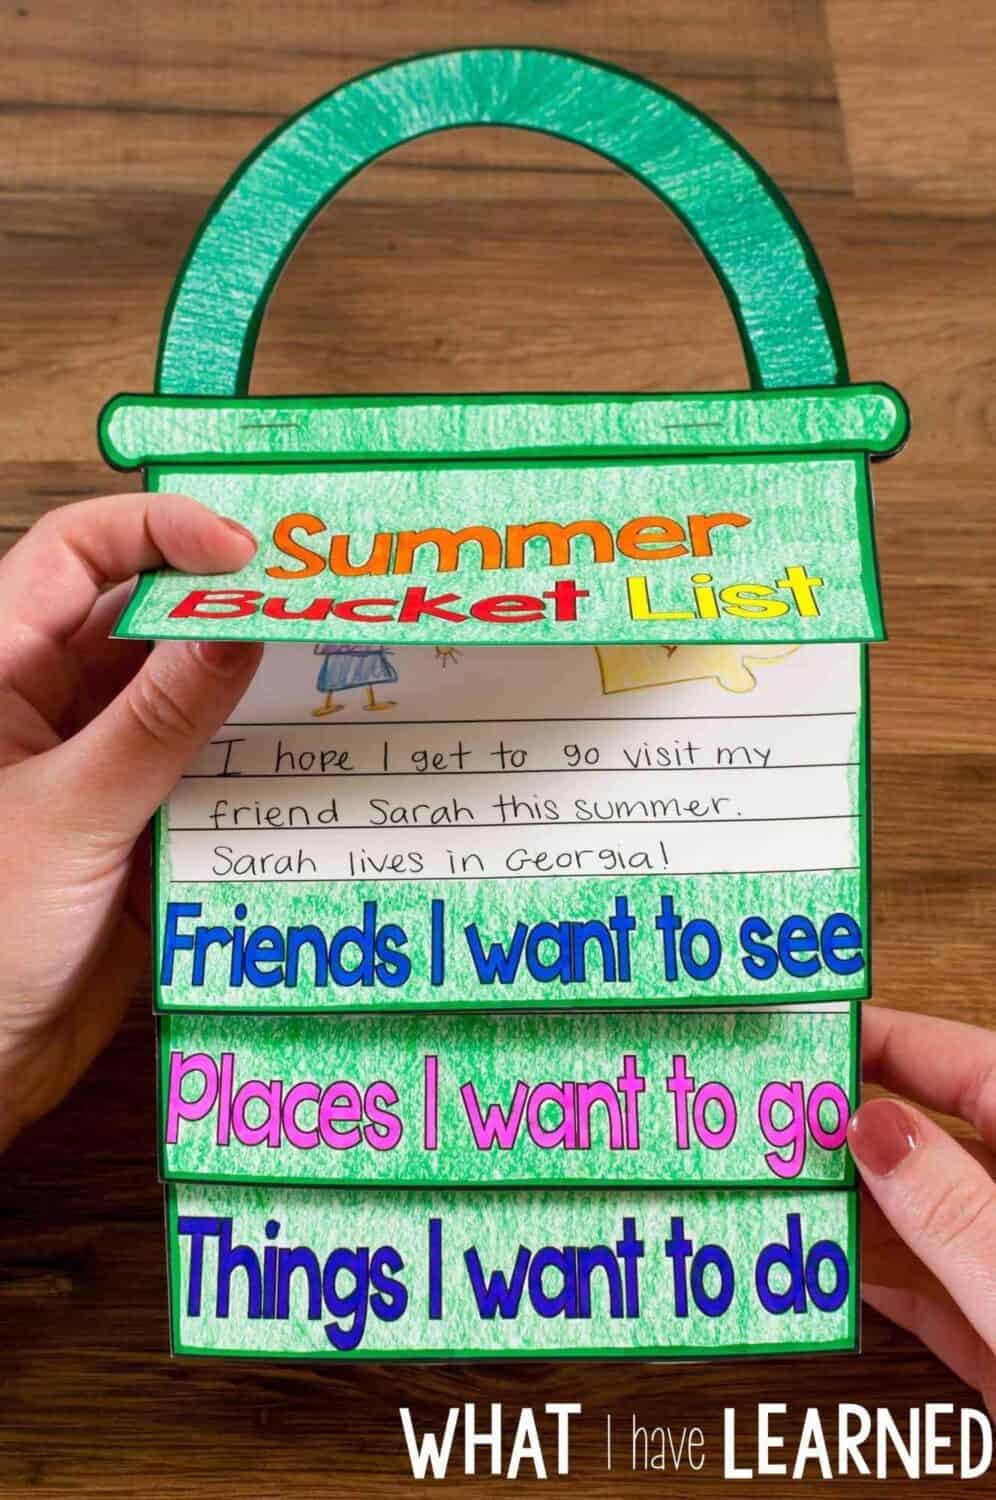 Summer
Bucket List
I hope I get to go visit my
friend Sarah this summer.
Sarah lives in Georgia!
Friends I want to see
Places I want to go
Things I want to do
WHAT I have LEARNED